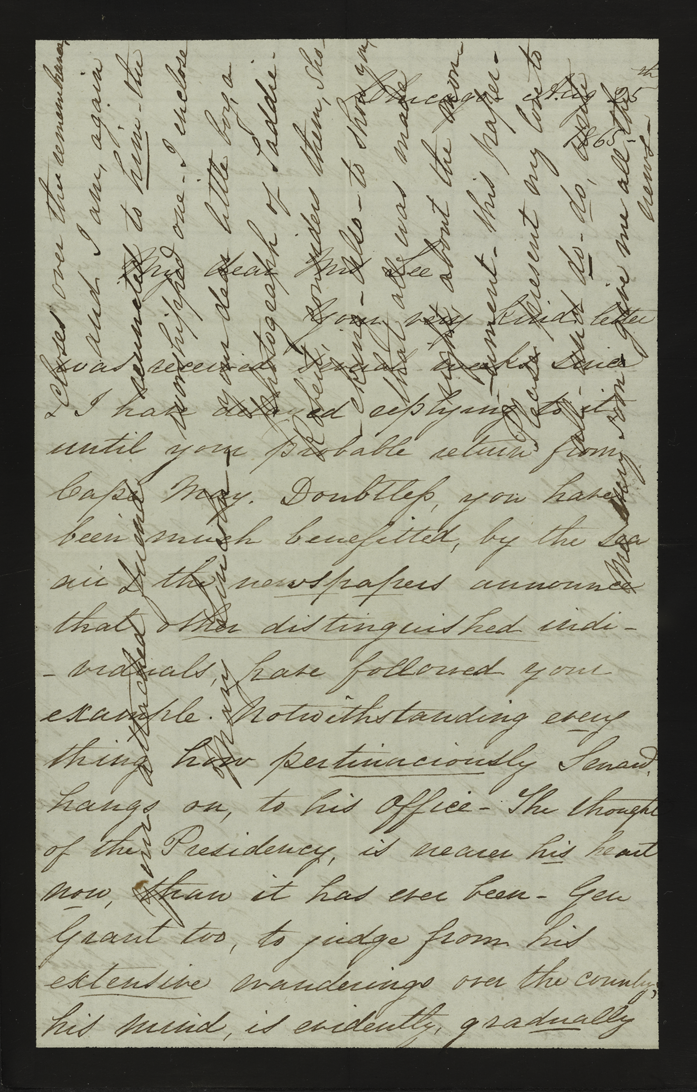 Chicago. Aug 25th
1865 -
My dear Mrs Lee
Your very kind letter
was received several weeks since
& I have delayed replying to it
until your probable return from
Cape May. Doubtless, you have
been much benefitted, by the sea
air & the newspapers announce
that other distinguished indi-
-viduals, have followed your
example. Notwithstanding every
thing how pertinaciously Seward,
hangs on, to his office - The thought
of the Presidency, is nearer his heart
now, than it has ever been - Gen
Grant too, to judge from his
extensive wanderings over the country,
his mind, is evidently, gradually
closes over the remembrance
and I am, again
reunited to him - the
worshipped one. I enclose
your dear little boy a
photograph of Taddie -
Robert, considers them,
- also - to show you
that all was made
right about the mon-
-ument - this paper -
Please present my love to
all - and do - do,
very soon & give me all the
news -
Your attached friend
Mary Lincoln -